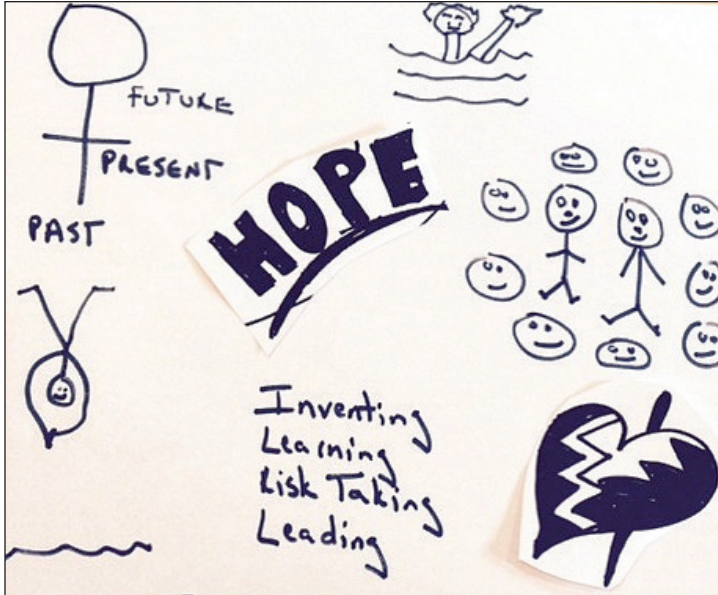 FUTURE
PRESENT
PAST
HOPE
Inventing
Learning
Risk Taking
Leading